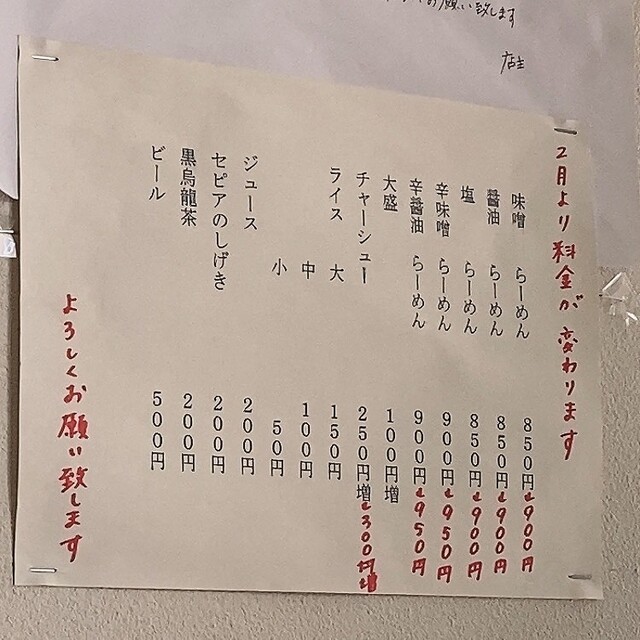 お願い致します
店主
2月より料金が変わります
味噌 らーめん 850円→900円
醤油 らーめん 850円→900円
塩 らーめん 850円→900円
辛味噌 らーめん 900円→950円
辛醤油 らーめん 900円→950円
大盛 100円増
チャーシュー 250円増→300円増
ライス 大 150円
中 100円
小 50円
ジュース 200円
セピアのしげき 200円
黒烏龍茶 200円
ビール 500円
よろしくお願い致します